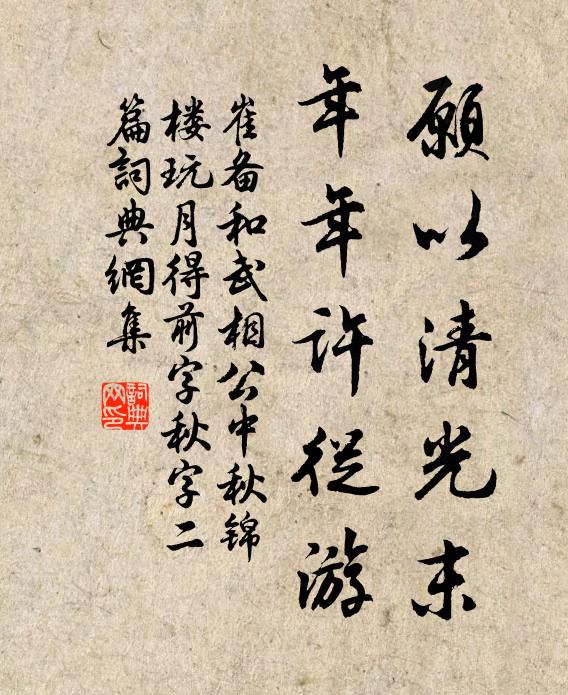 願以清光末
年年許從游
崔备和武相公中秋锦
楼玩月得前字秋字二
篇詞典網集
詞典
网印